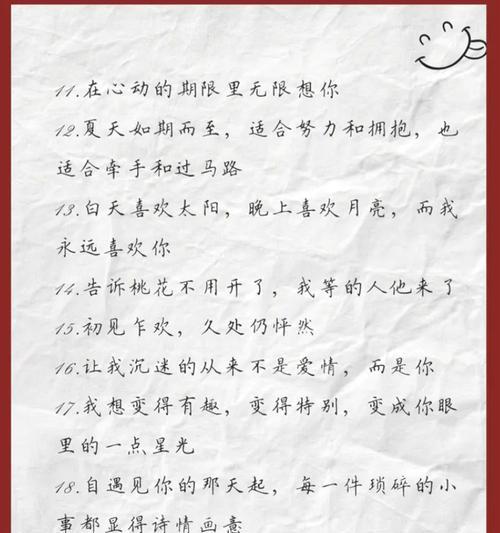 11.在心动的期限里无限想你
12.夏天如期而至，适合努力和拥抱，也
适合牵手和过马路
13.白天喜欢太阳，晚上喜欢月亮，而我
永远喜欢你
14.告诉桃花不用开了，我等的人他来了
15.初见乍欢，久处仍怦然
16.让我沉迷的从来不是爱情，而是你
17.我想变得有趣，变得特别，变成你眼
里的一点星光
18.自遇见你的那天起，每一件琐碎的小
事都显得诗情画意